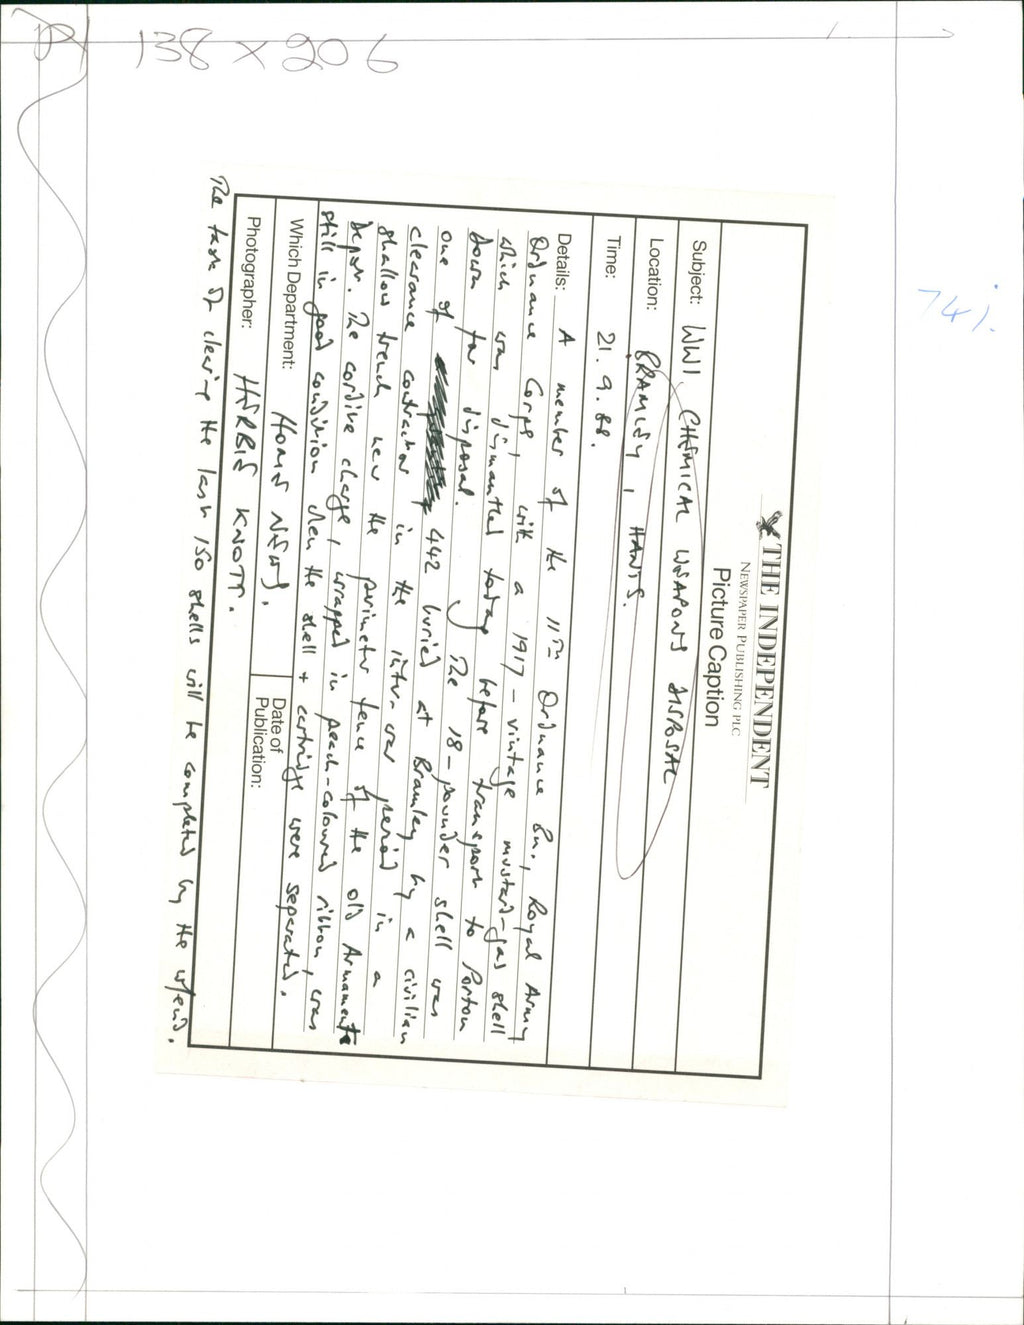 138 x 206
74%
THE INDEPENDENT
NEWSPAPER PUBLISHING PLC
Picture Caption
Subject: WWI CHEMICAL WEAPONS DISPOSAL
Location: BRAMLEY, HANTS.
Time: 21.9.88.
Details: A member of the 11th Ordnance Bn., Royal Army
Ordnance Corps, with a 1917-vintage mustard-gas shell
which was dismantled today before transport to Porton
Down for disposal. The 18-pounder shell was
one of 442 buried at Bramley by a civilian
clearance contractor in the inter-war period in a
shallow trench near the perimeter fence of the old Armaments
Depot. The cordite charge, wrapped in peach-coloured ribbon, was
still in good condition when the shell + cartridge were separated.
Which Department: HOME NEWS.
Date of
Publication:
Photographer: HERBIE KNOTT.
The task of clearing the last 150 shells will be completed by the w/end.